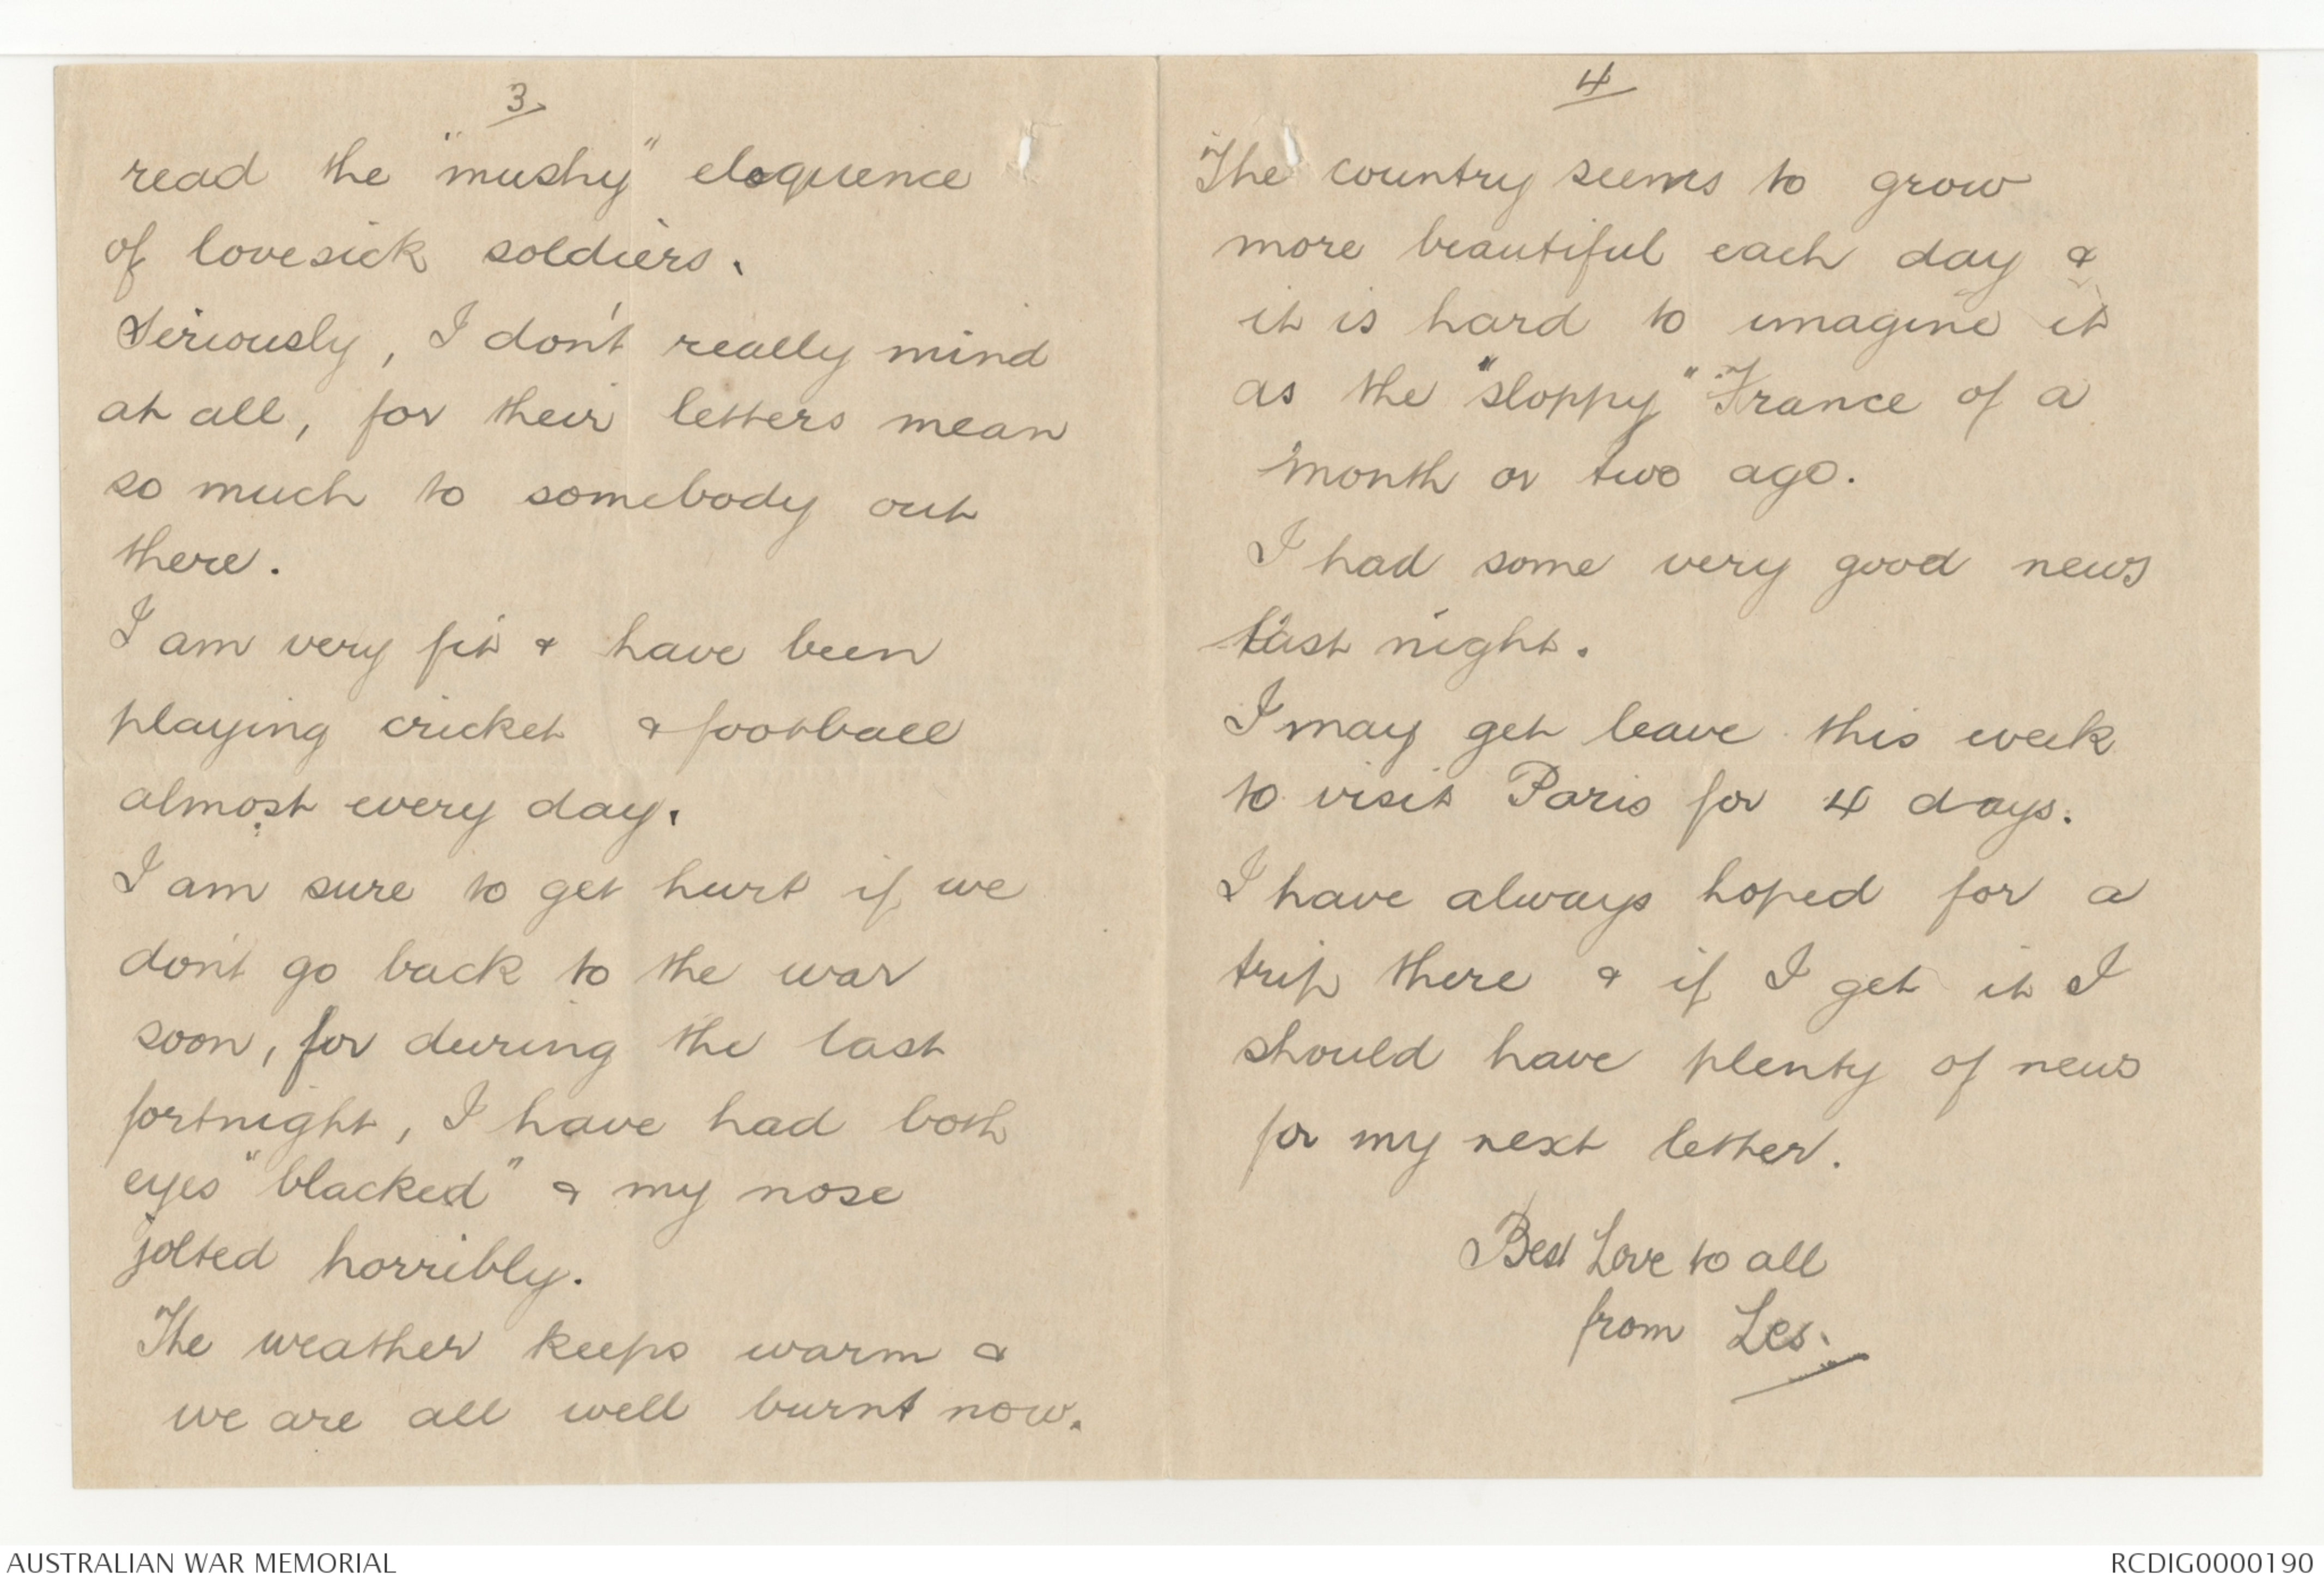 3
read the "mushy" eloquence
of lovesick soldiers.
Seriously, I don't really mind
at all, for their letters mean
so much to somebody out
there.
I am very fit & have been
playing cricket & football
almost every day.
I am sure to get hurt if we
don't go back to the war
soon, for during the last
fortnight, I have had both
eyes "blacked" & my nose
jolted horribly.
The weather keeps warm &
we are all well burnt now.
4
The country seems to grow
more beautiful each day &
it is hard to imagine it
as the "sloppy" France of a
month or two ago.
I had some very good news
last night.
I may get leave this week
to visit Paris for 4 days.
I have always hoped for a
trip there & if I get it I
should have plenty of news
for my next letter.
Best Love to all
from Les.
AUSTRALIAN WAR MEMORIAL
RCDIG0000190